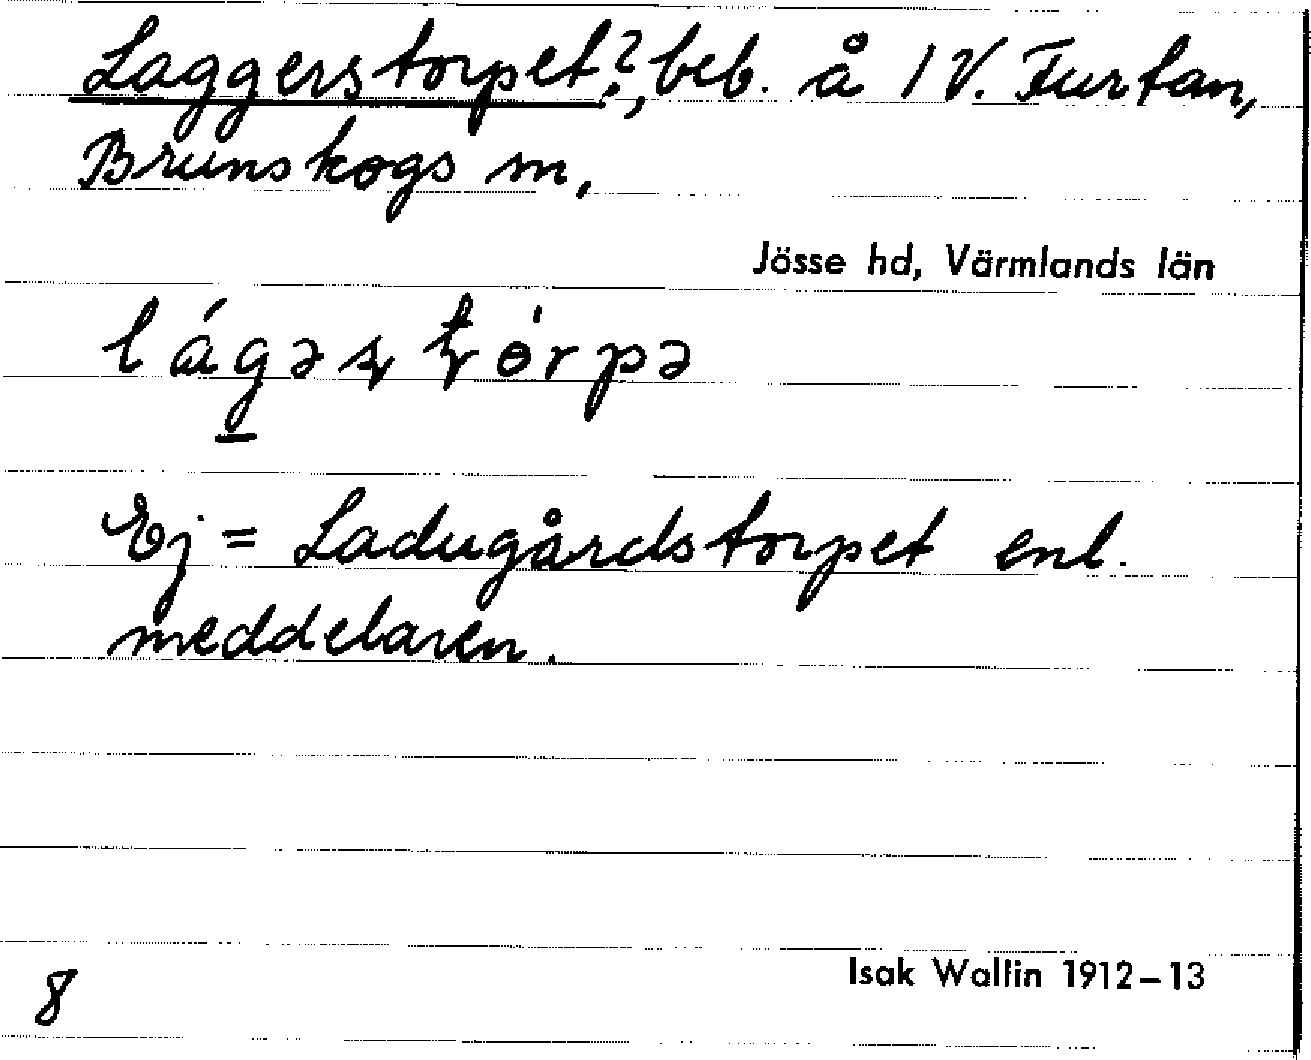 Laggerstorpet?, beb. å 1 V. Furtan,
Brunskogs sn,
Jösse hd, Värmlands län
Ej = Ladugårdstorpet enl.
meddelaren.
Isak Wallin 1912–13
8